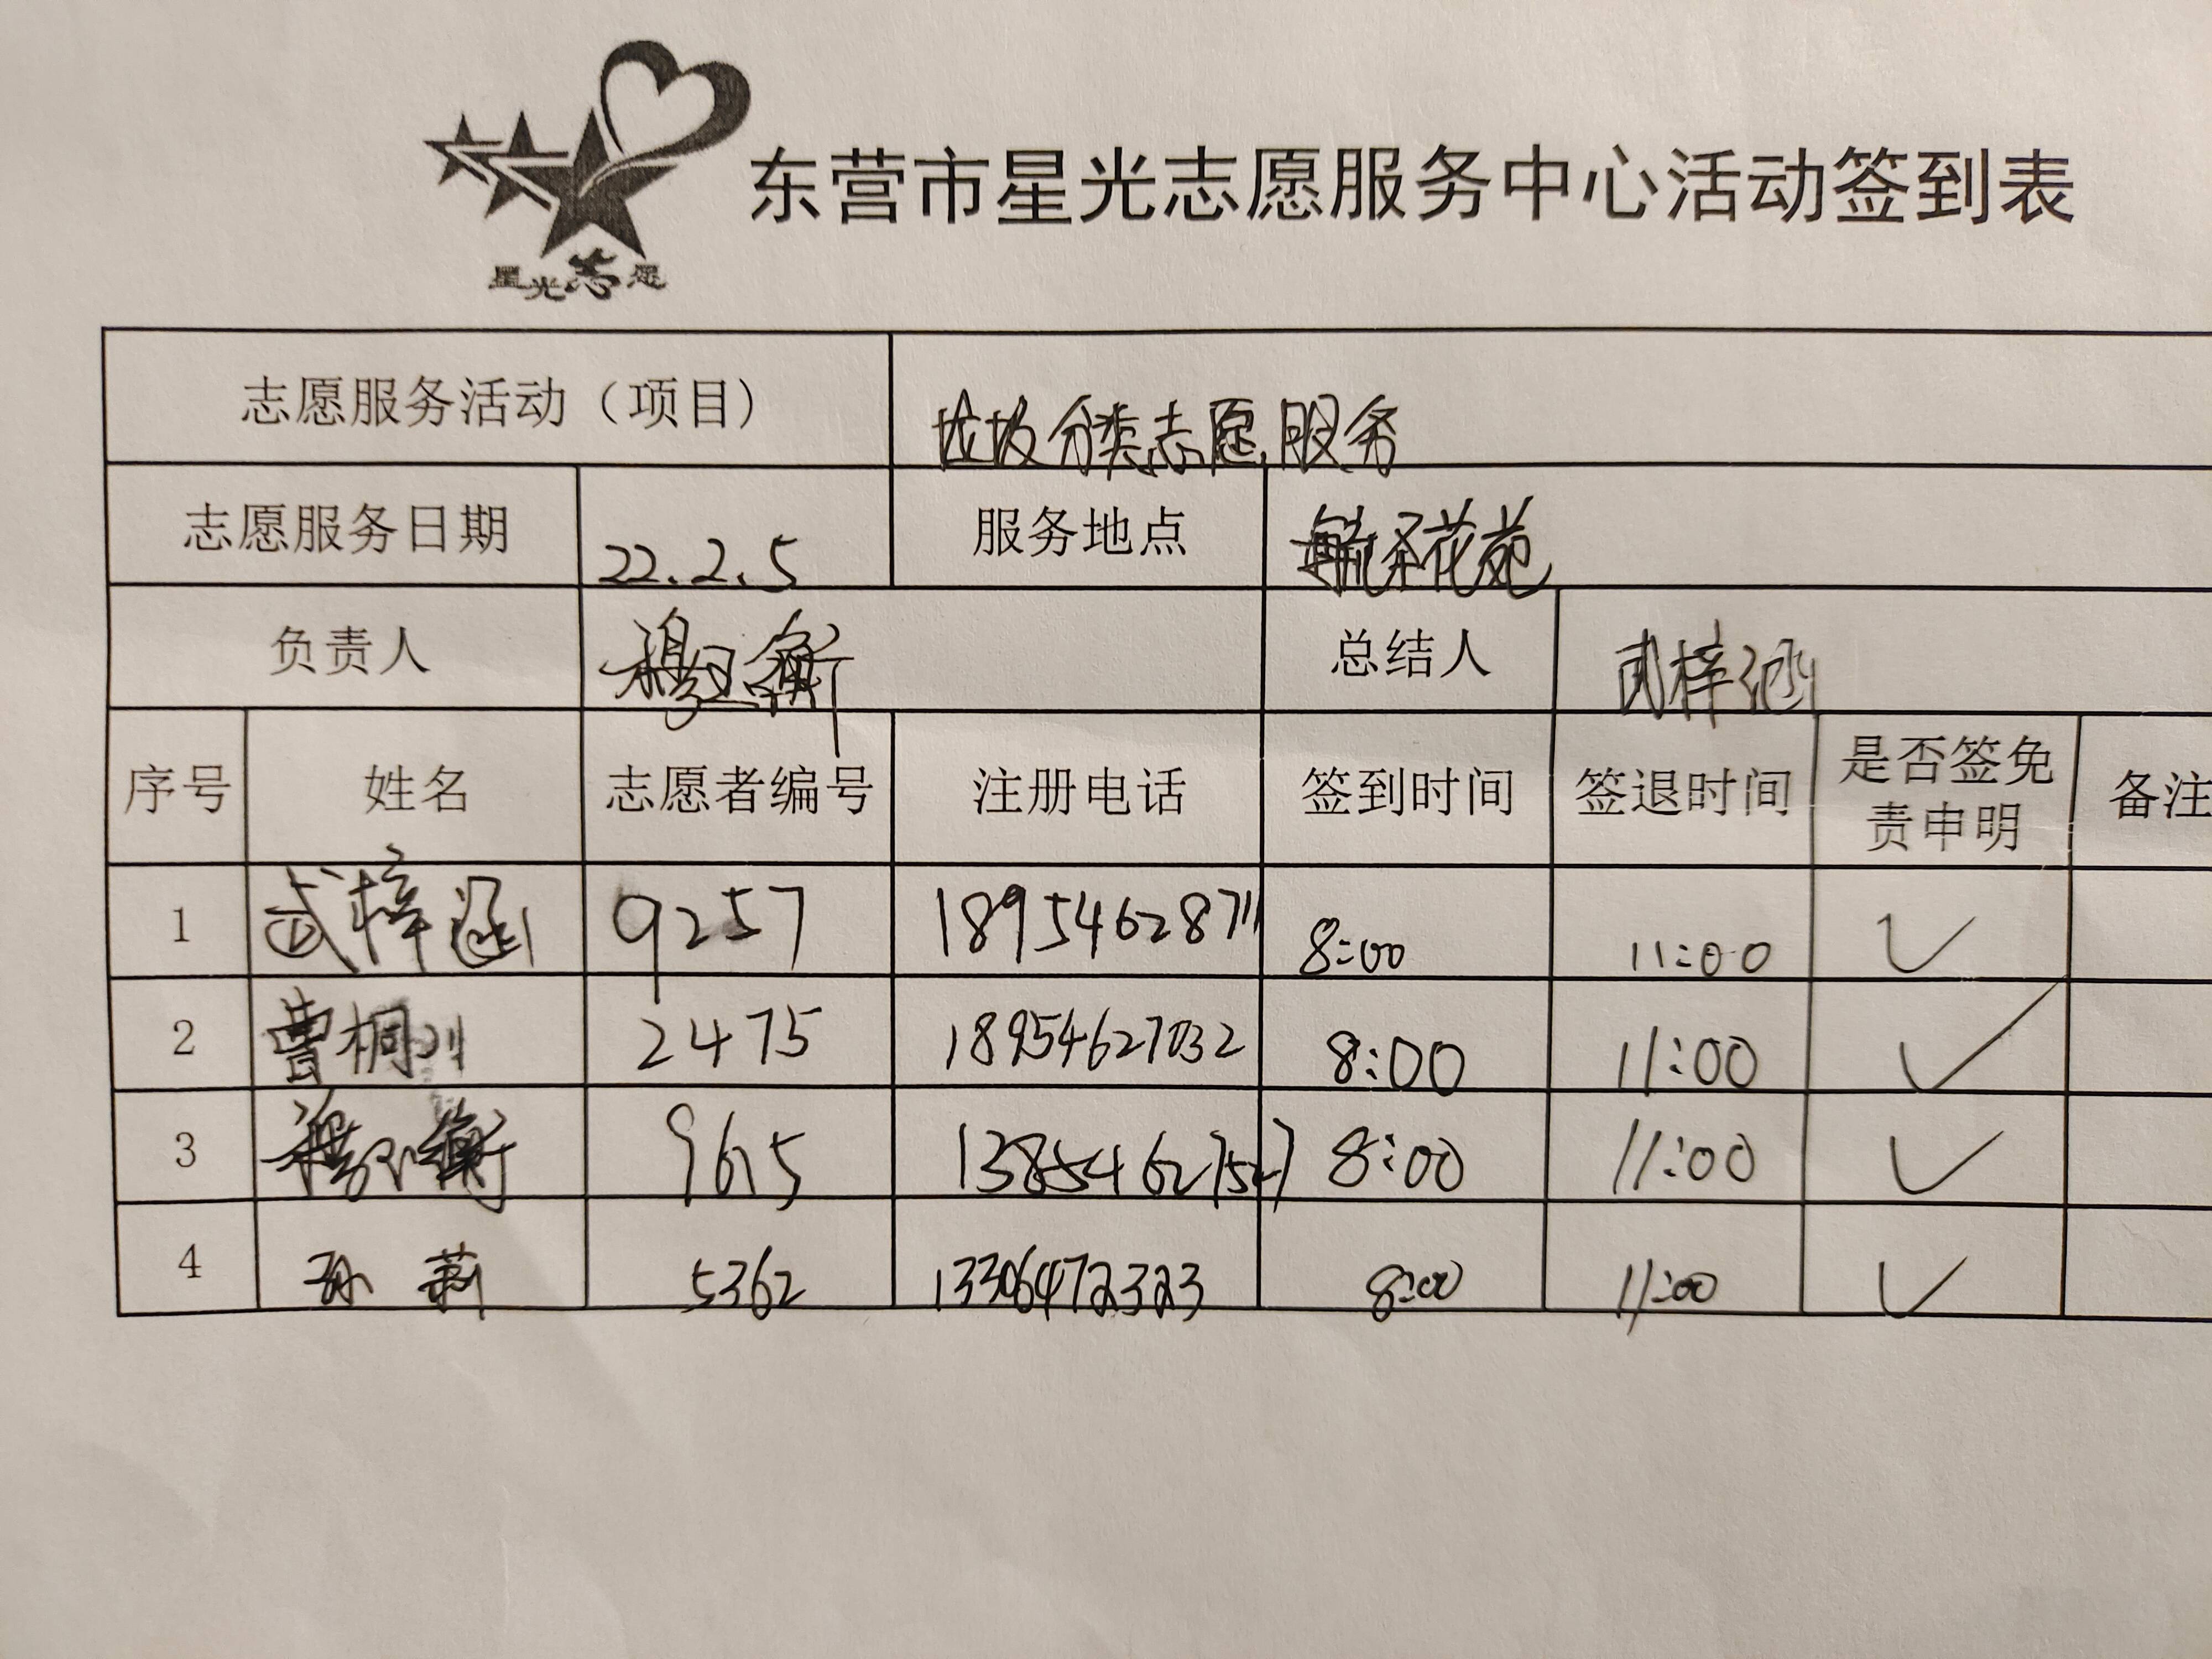 东营市星光志愿服务中心活动签到表
星光志愿
志愿服务活动（项目） 垃圾分类志愿服务
志愿服务日期 22.2.5 服务地点 毓圣花苑
负责人 穆 衡 总结人 武梓涵
序号 姓名 志愿者编号 注册电话 签到时间 签退时间 是否签免责申明 备注
1 武梓涵 9257 18954628711 8:00 11:00 ✓
2 曹桐川 2475 18954627032 8:00 11:00 ✓
3 穆 衡 9615 8:00 11:00 ✓
4 孙莉 5362 13306472323 8:00 11:00 ✓